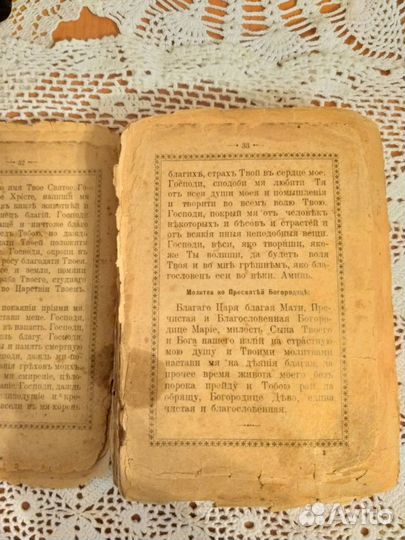 32
имя Твое Святое. Го-
Христе, напиши мя
животнѣй и
нецъ благій. Господи
аще и ничтоже благо
редъ Тобою, но даждь
положити
Господи, окропи въ
росу благодати Твоея
небесе и земли, помяни
раба Твоего, студнаго
во Царствіи Твоемъ.
покаяніи прiими мя.
остави мене. Господи,
въ напасть. Господи,
мысль благу. Господи,
и память смертную
Господи, даждь ми по-
грѣховъ моихъ.
ми смиреніе, цѣло-
Господи, даждь
великодушіе и кро-
всели въ мя корень
33
благихъ, страхъ Твой въ сердце мое.
Господи, сподоби мя любити Тя
отъ всея души моея и помышленія
и творити во всемъ волю Твою.
Господи, покрый мя отъ человѣкъ
нѣкоторыхъ и бѣсовъ и страстей и
отъ всякія иныя неподобныя вещи.
Господи, вѣси, яко твориши, яко-
же Ты волиши, да будетъ воля
Твоя и во мнѣ грѣшнѣмъ, яко бла-
гословенъ еси во вѣки. Аминь.
Молитва ко Пресвятѣй Богородицѣ.
Благаго Царя благая Мати, Пре-
чистая и Благословенная Богоро-
дице Маріе, милость Сына Твоего
и Бога нашего излій на страстную
мою душу и Твоими молитвами
настави мя на дѣянія благая, да
прочее время живота моего безъ
порока прейду и Тобою рай да
обрящу, Богородице Дѣво, едина
чистая и благословенная.
3
Avito